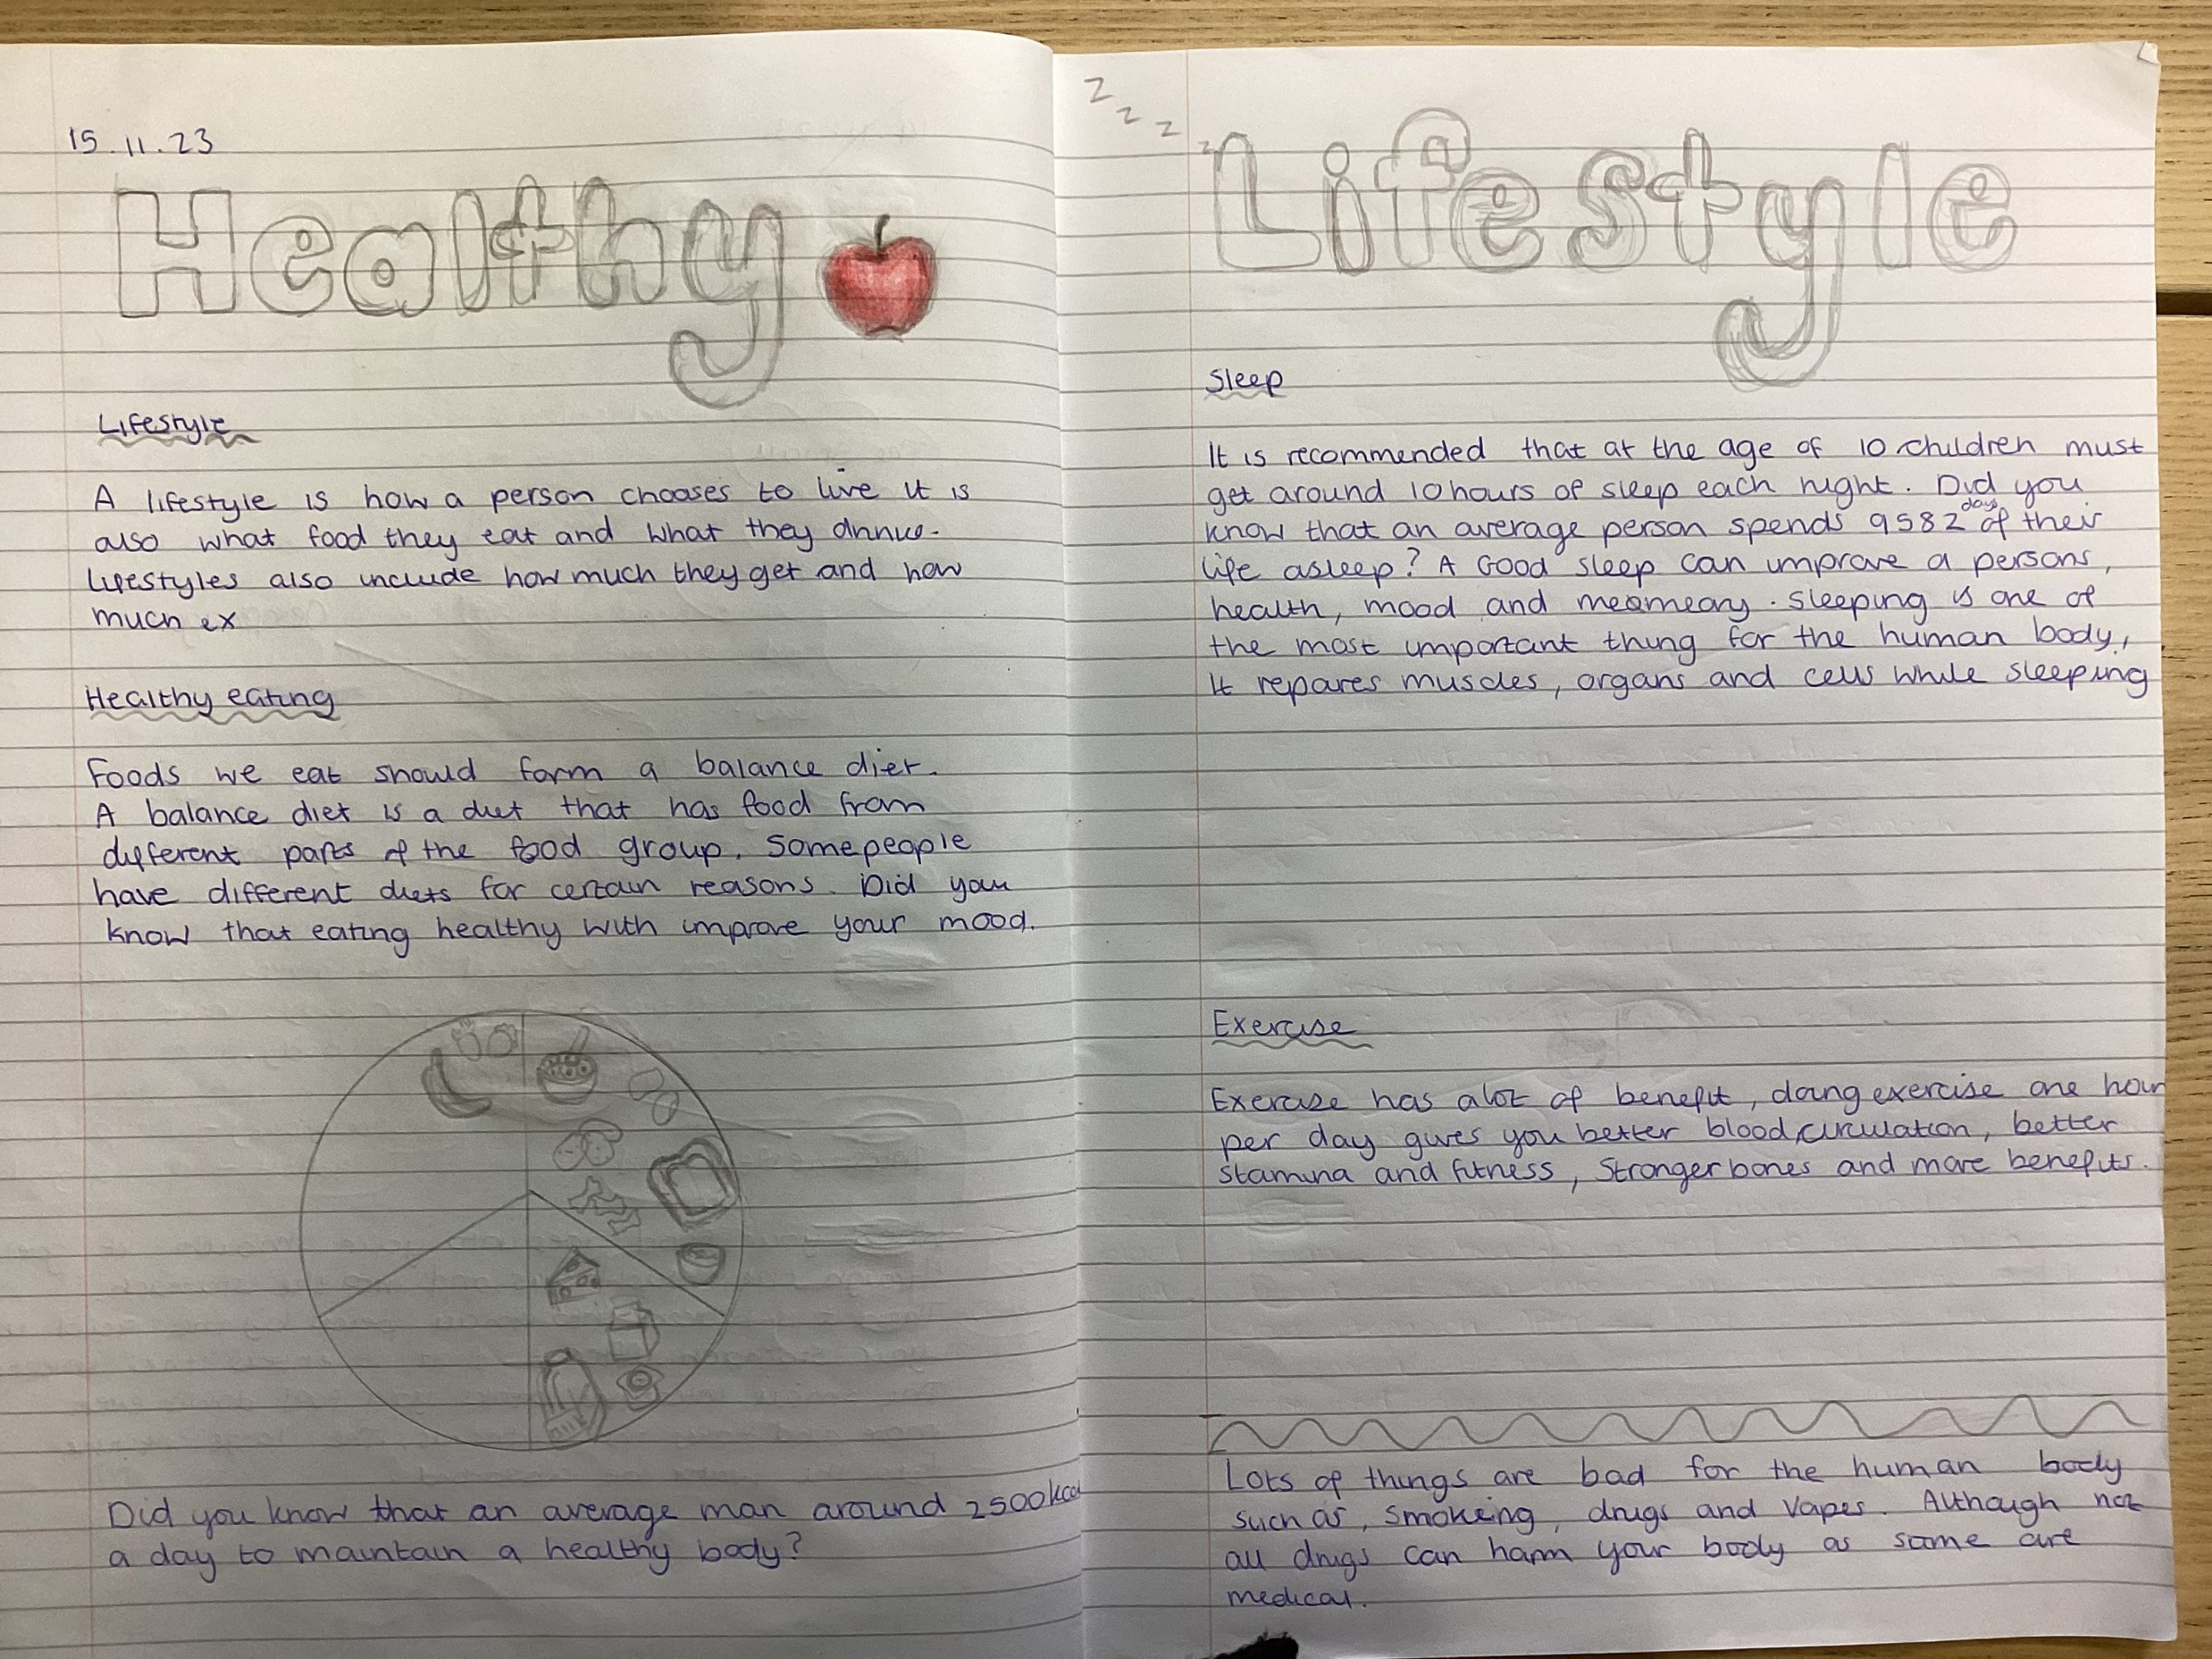 15.11.23
Healthy
Lifestyle
A lifestyle is how a person chooses to live it is
also what food they eat and what they
lifestyles also include how much they get and how
much ex
Healthy eating
Foods we eat should form a balance diet.
A balance diet is a diet that has food from
different parts of the food group. Some people
have different diets for certain reasons. Did you
know that eating healthy with improve your mood.
Did you know that an average man around 2500kcal
a day to maintain a healthy body?
z z z z
Lifestyle
Sleep
It is recommended that at the age of 10 children must
get around 10 hours of sleep each night. Did you
know that an average person spends 9582 days of their
life asleep? A Good sleep can improve a persons,
health, mood and . Sleeping is one of
the most important thing for the human body,
It repares muscles, organs and cells while sleeping
Exercise
Exercise has alot of benefit, doing exercise one hour
per day gives you better blood, circulation, better
stamina and fitness, Stronger bones and more benefits.
Lots of things are bad for the human body
such as, smokeing, drugs and vapes. Although not
all drugs can harm your body as some are
medical.